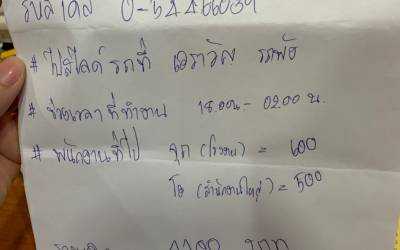 รับสไลด์ 0-54466039
# ไปสไลด์ รถที่ เอราวัณ รถพัง
# ช่วงเวลาที่ทำงาน 18.00น - 02.00 น.
# พนักงานที่ไป จุก (โรงงาน) = 600
โอ (สำนักงานใหญ่) = 500
1100 บาท